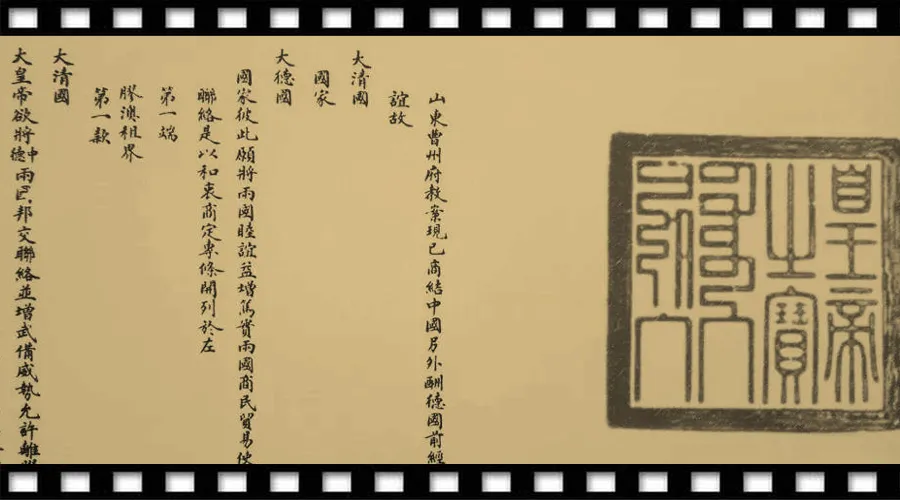 皇帝
之寶
山東曹州府教案現已商結中國另外酬德國前經
誼故
大清國
國家
大德國
國家彼此願將兩國睦誼益增篤實兩國商民貿易使
聯絡是以和衷商定專條開列於左
第一端
膠澳租界
第一款
大清國
大皇帝欲將中德兩國邦交聯絡並增武備威勢允許離